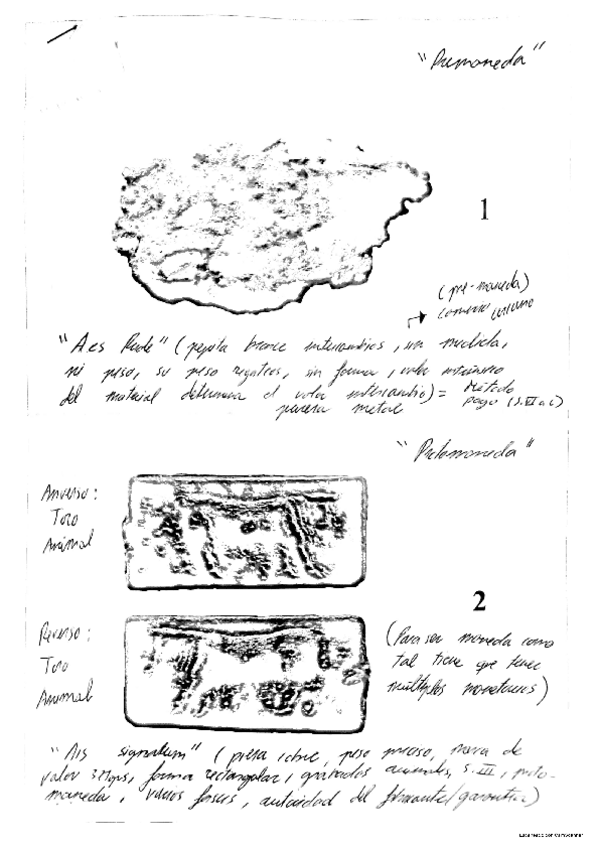 "Premoneda"
1
(pre-moneda)
comercio
"Aes Rude" (pepita bronce intercambios, sin medida,
ni peso, su peso, sin forma, valor intrínseco
del material determina el valor intercambio) = Método
metal pago (S. VI a.C)
"Protomoneda"
Anverso:
Toro
Animal
2
Reverso:
Toro
Animal
(Para ser moneda como
tal tiene que tener
múltiplos monetarios)
"Aes signatum" (pieza cobre, peso preciso, marca de
valor, forma rectangular, grabados animales, S. III, proto-
moneda, varios fases, autoridad del /garantía)